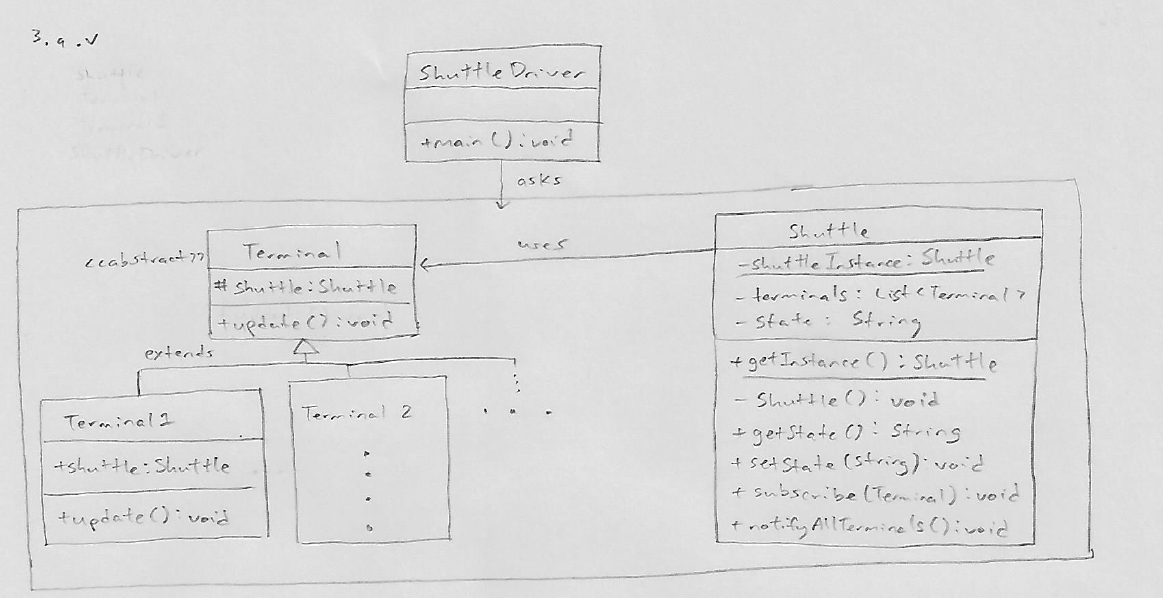 3.a.v
ShuttleDriver
+main():void
asks
<<abstract>>
Terminal
#shuttle:Shuttle
+update():void
uses
Shuttle
-shuttleInstance:Shuttle
-terminals:List<Terminal>
-State: String
+getInstance():Shuttle
-Shuttle():void
+getState():String
+setState(String):void
+subscribe(Terminal):void
+notifyAllTerminals():void
extends
Terminal1
+shuttle:Shuttle
+update():void
Terminal 2